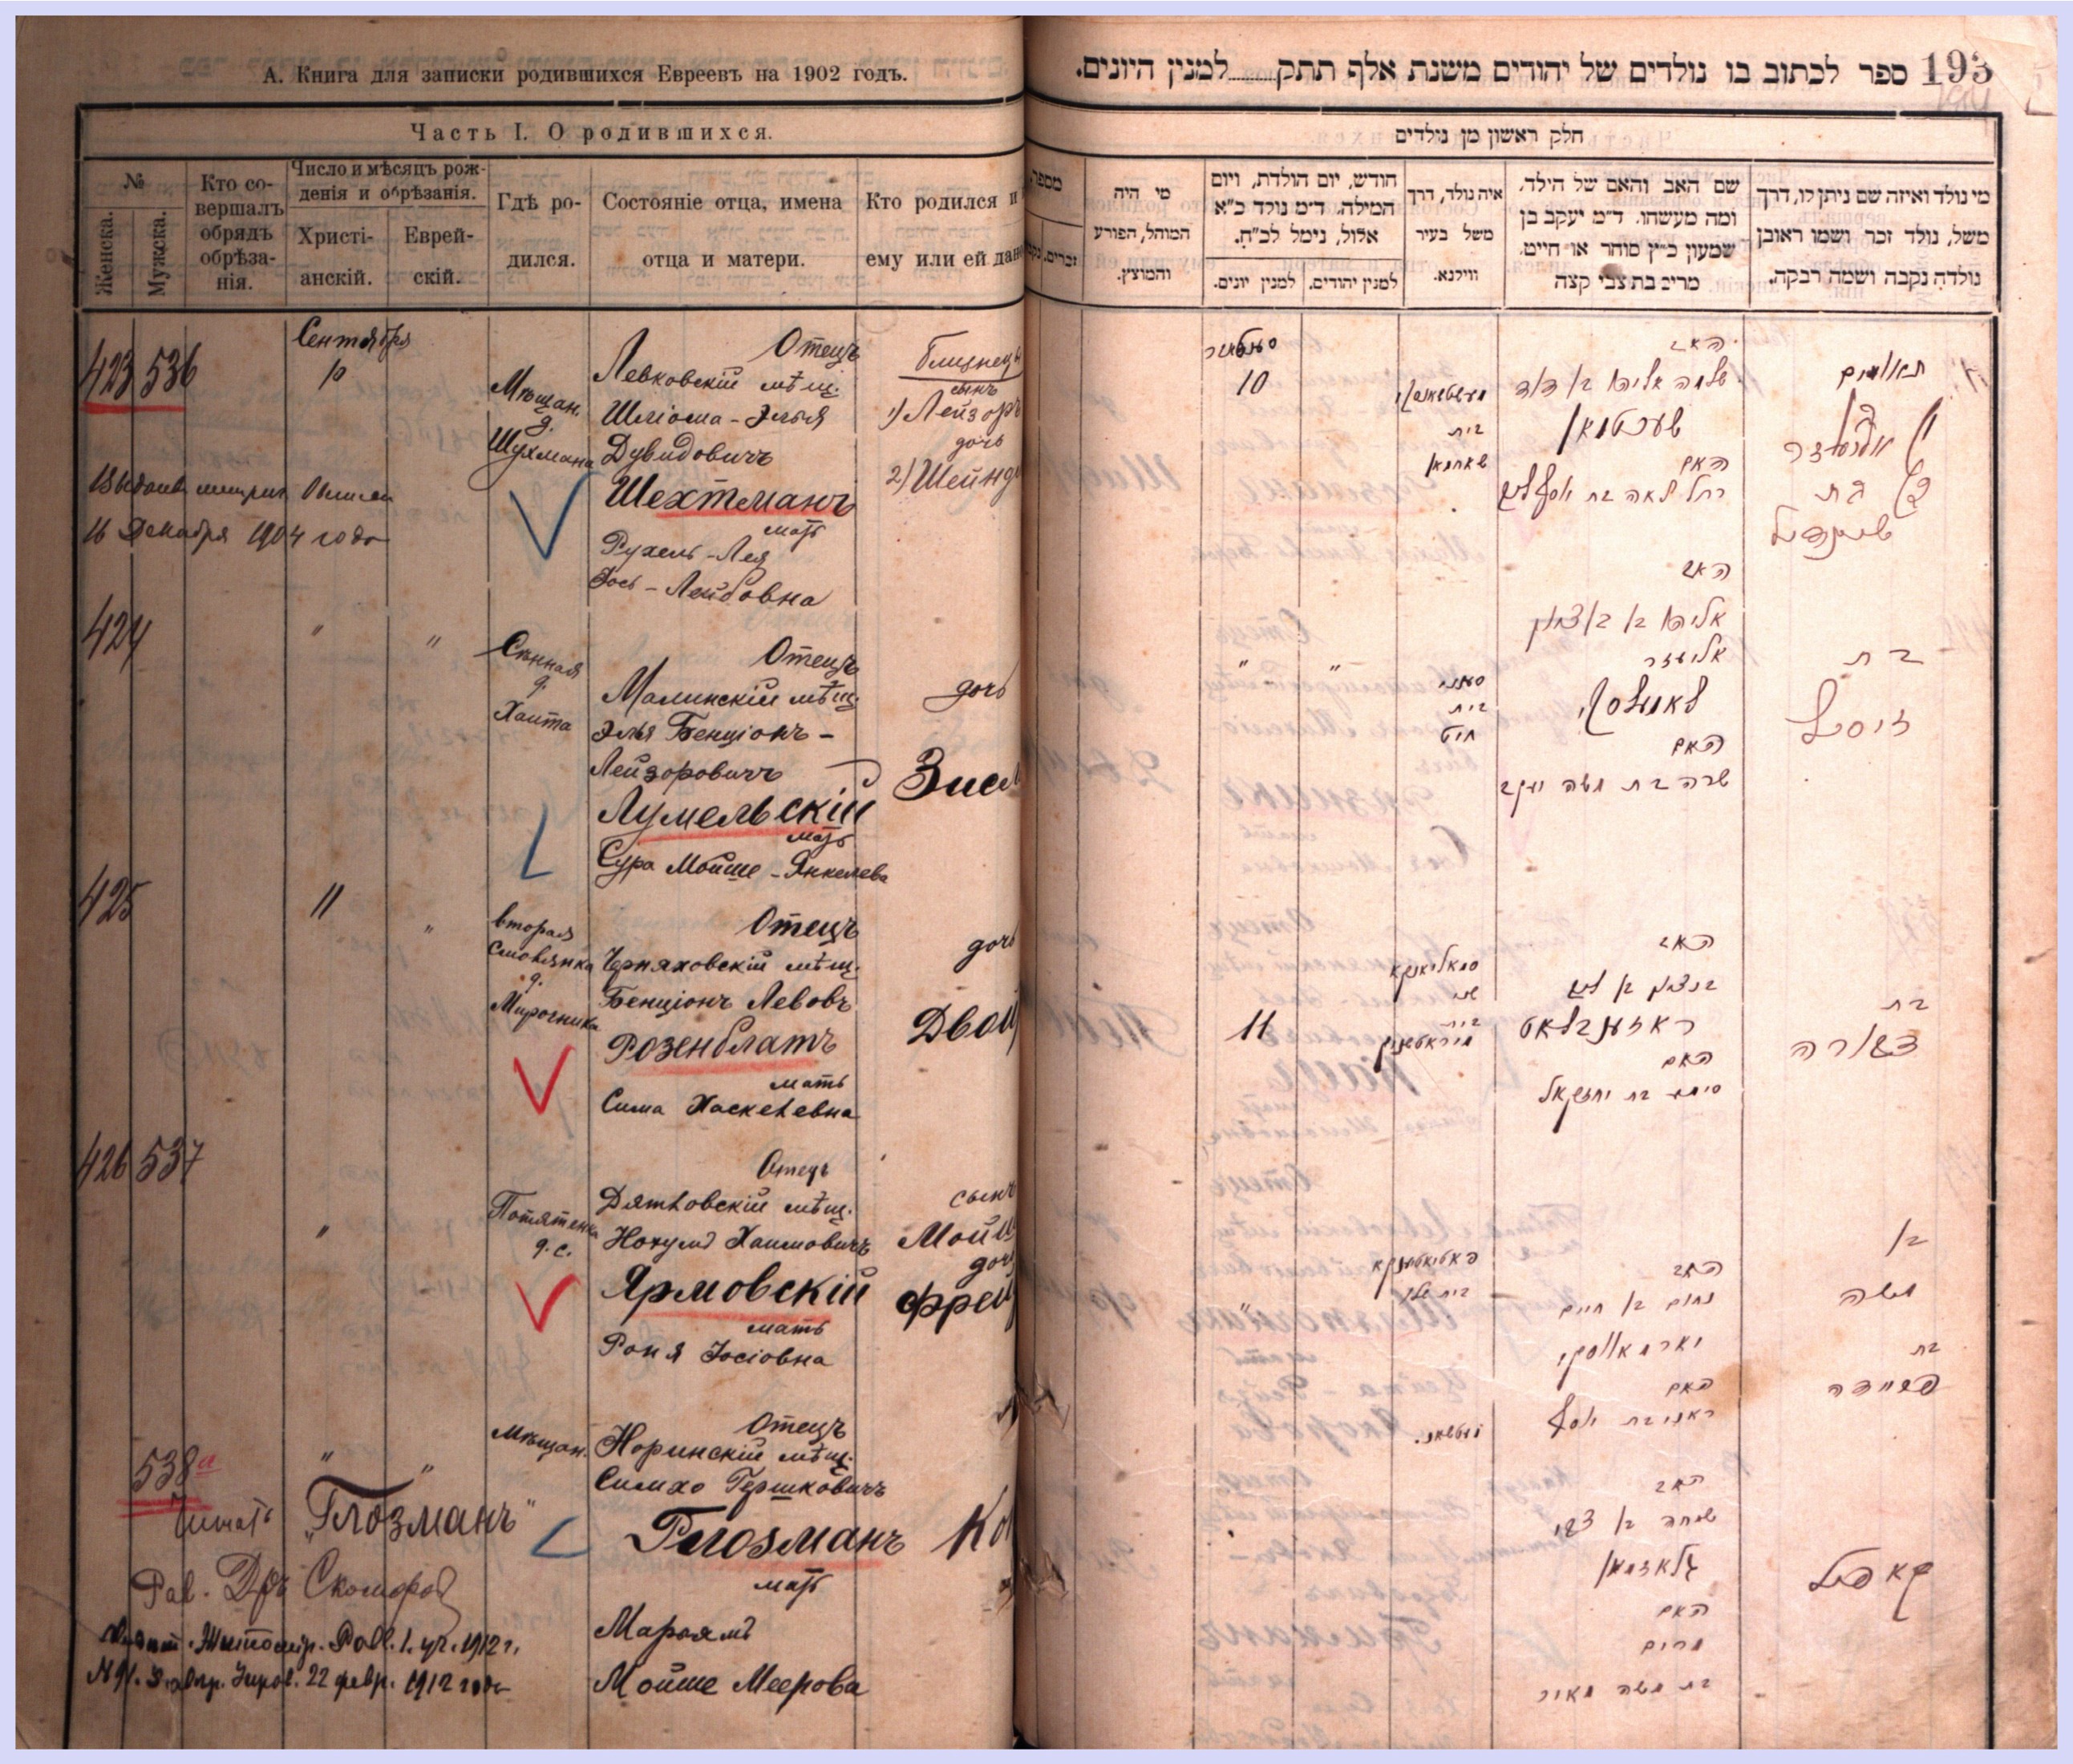 А. Книга для записки родившихся Евреевъ на 1902 годъ.
Часть I. О родившихся.
№
Женска.
Мужска.
Кто со-
вершалъ
обрядъ
обрѣза-
нія.
Число и мѣсяцъ рож-
денія и обрѣзанія.
Христі-
анскій.
Еврей-
скій.
Гдѣ ро-
дился.
Состояніе отца, имена
отца и матери.
Кто родился и
ему или ей дан
423 536
Сентября
10
Мѣщан.
д.
Шухмана
Отецъ
Левковскій мѣщ.
Шліома-Элья
Дувидовичъ
Шехтманъ
мать
Рухель-Лея
Іось-Лейбовна
близнецы
сынъ
1) Лейзоръ
дочь
2) Шейнд
16 Декабря 1904 года
424
" "
Сѣнная
д.
Хаита
Отецъ
Малинскій мѣщ.
Элья Бенціонъ-
Лейзоровичъ
Лумельскій
мать
Сура Мойше-Янкелева
дочь
Зисл
425
11 "
вторая
Смолянка
д.
Мирочника
Отецъ
Черняховскій мѣщ.
Бенціонъ Левовъ
Розенблатъ
мать
Сима Хаскелевна
дочь
Двой
426 537
"
д. с.
Отецъ
Дятковскій мѣщ.
Нохумъ Хаимовичъ
Ярмовскій
мать
Роня Іосіовна
сынъ
Мойш
дочь
Фрей
538а
" "
Мѣщан.
Отецъ
Норинскій мѣщ.
Симхо Гершковичъ
Глозманъ
мать
Марьямъ
Мойше Меерова
Ко
Читать „Глозманъ"
Рав. Дръ Скоморов
Житомір. Равв. 1. уч. 1912 г.
22 февр. 1912 года
ספר לכתוב בו נולדים של יהודים משנת אלף תתק........למנין היונים.
193
חלק ראשון מן נולדים
מי נולד ואיזה שם ניתן לו, דרך
משל, נולד זכר ושמו ראובן
נולדה נקבה ושמה רבקה.
שם האב והאם של הילד,
ומה מעשהו. ד״מ יעקב בן
שמעון כ״ץ סוחר או חיים.
מרים בת צבי קצה
איה נולד, דרך
משל בעיר
ווילנא.
חודש, יום הולדת, ויום
המילה. ד״מ נולד כ״א
אלול, נימל לכ״ח.
למנין יהודים.
למנין יונים.
מי היה
המוהל, הפורע
והמוצץ.
מספר
זכרים.
תאומים
בת
שיינדיל
10
האב
שלמה אליהו בן דוד
שעכטמאן
האם
רחל לאה בת יוסף ליב
בית
שוחמאן
בת
זיסל
" "
האב
אליהו בן בן ציון
אליעזר
לאומלסקי
האם
שרה בת משה יעקב
סעני
בית
חיט
בת
דבורה
11
האב
בן ציון בן ליב
ראזענבלאט
האם
סימא בת יחזקאל
סמאליאנקא
שני
בית
מיראטשניק
בן
משה
בת
פריידה
"
האב
נחום בן חיים
יארמאווסקי
האם
ראניא בת יוסף
בית שלו
קאפיל
האב
שמחה בן צבי
גלאזמאן
האם
מרים
בת משה מאיר